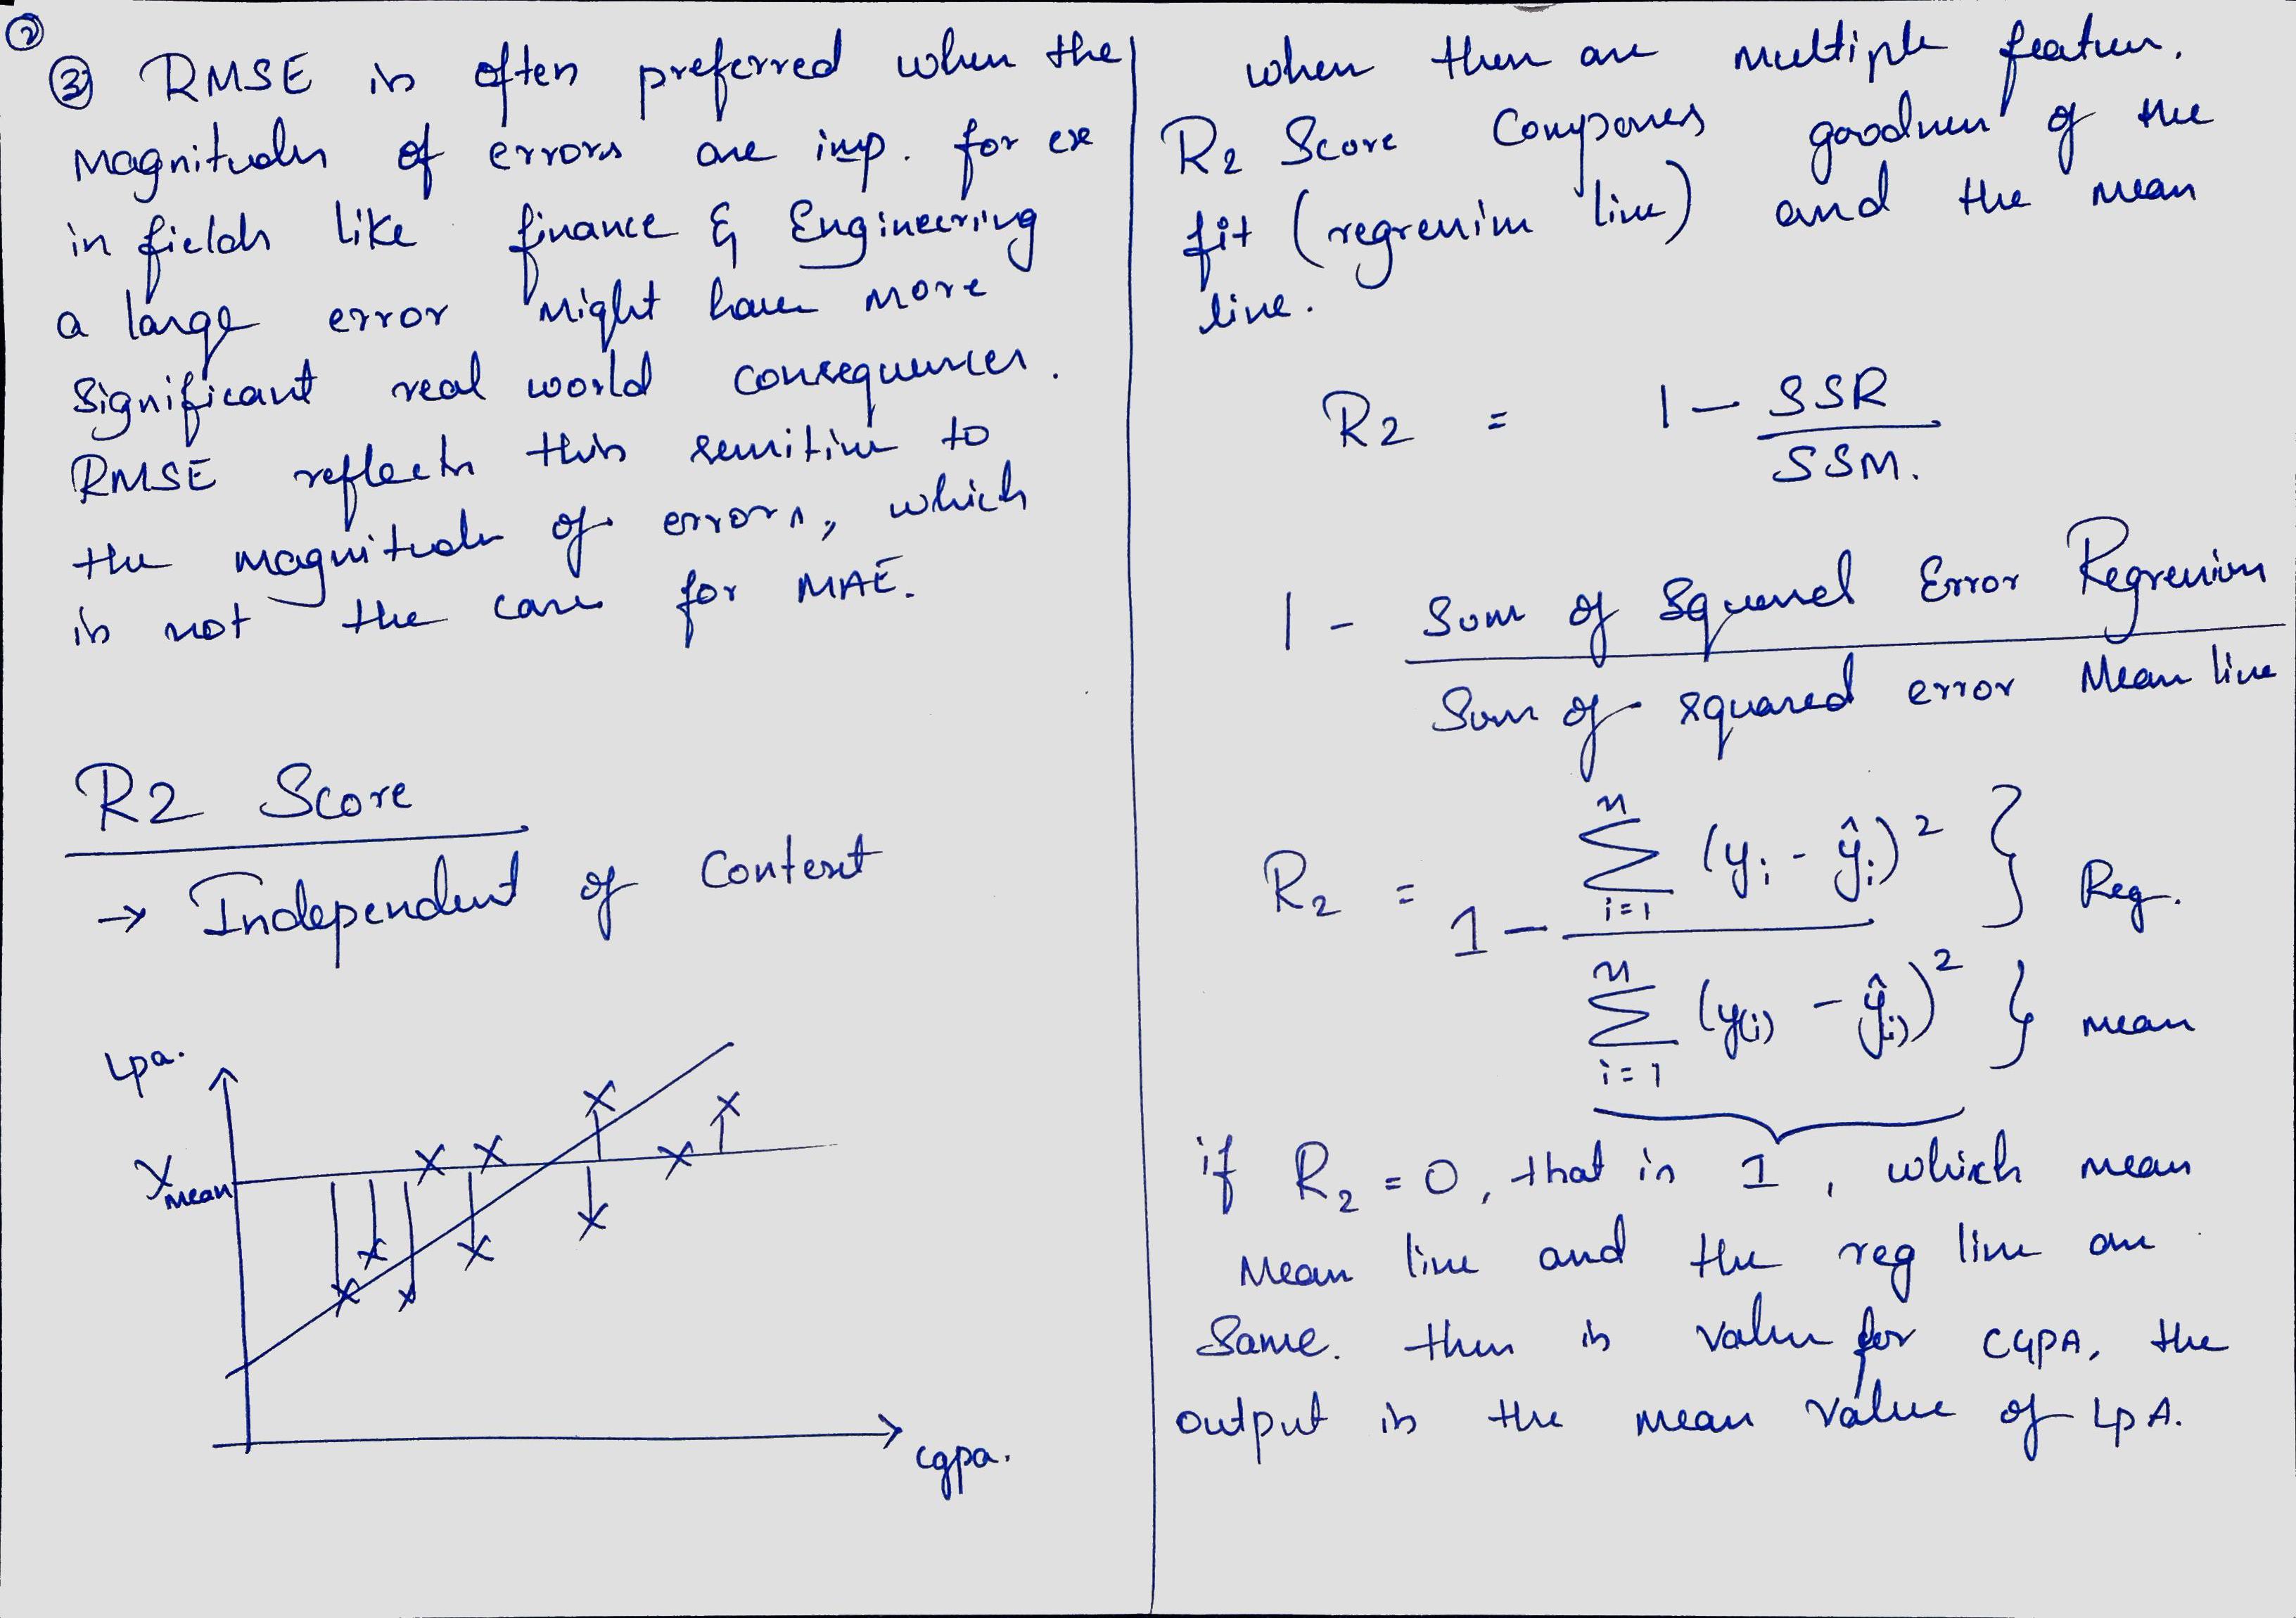 ②
③ RMSE is often preferred when the
magnitudes of errors are imp. for ex
in fields like finance & Engineering
a large error might have more
significant real world consequences.
RMSE reflects this sensitive to
the magnitude of errors, which
is not the case for MAE.
R2 Score
→ Independent of Context
Lpa.
Y mean
cgpa.
when there are multiple features.
R2 Score Compares goodness of the
fit (regression line) and the mean
line.
R2 = 1 - SSR
SSM.
1 - Sum of Squared Error Regression
Sum of squared error Mean line
R2 = 1 - n Σ i=1 (yi - ŷi)² } Reg.
n Σ i=1 (y(i) - ŷ(i))² } mean
if R2 = 0, that is 1, which mean
Mean line and the reg line are
Same. then is value for CGPA, the
output is the mean value of LPA.